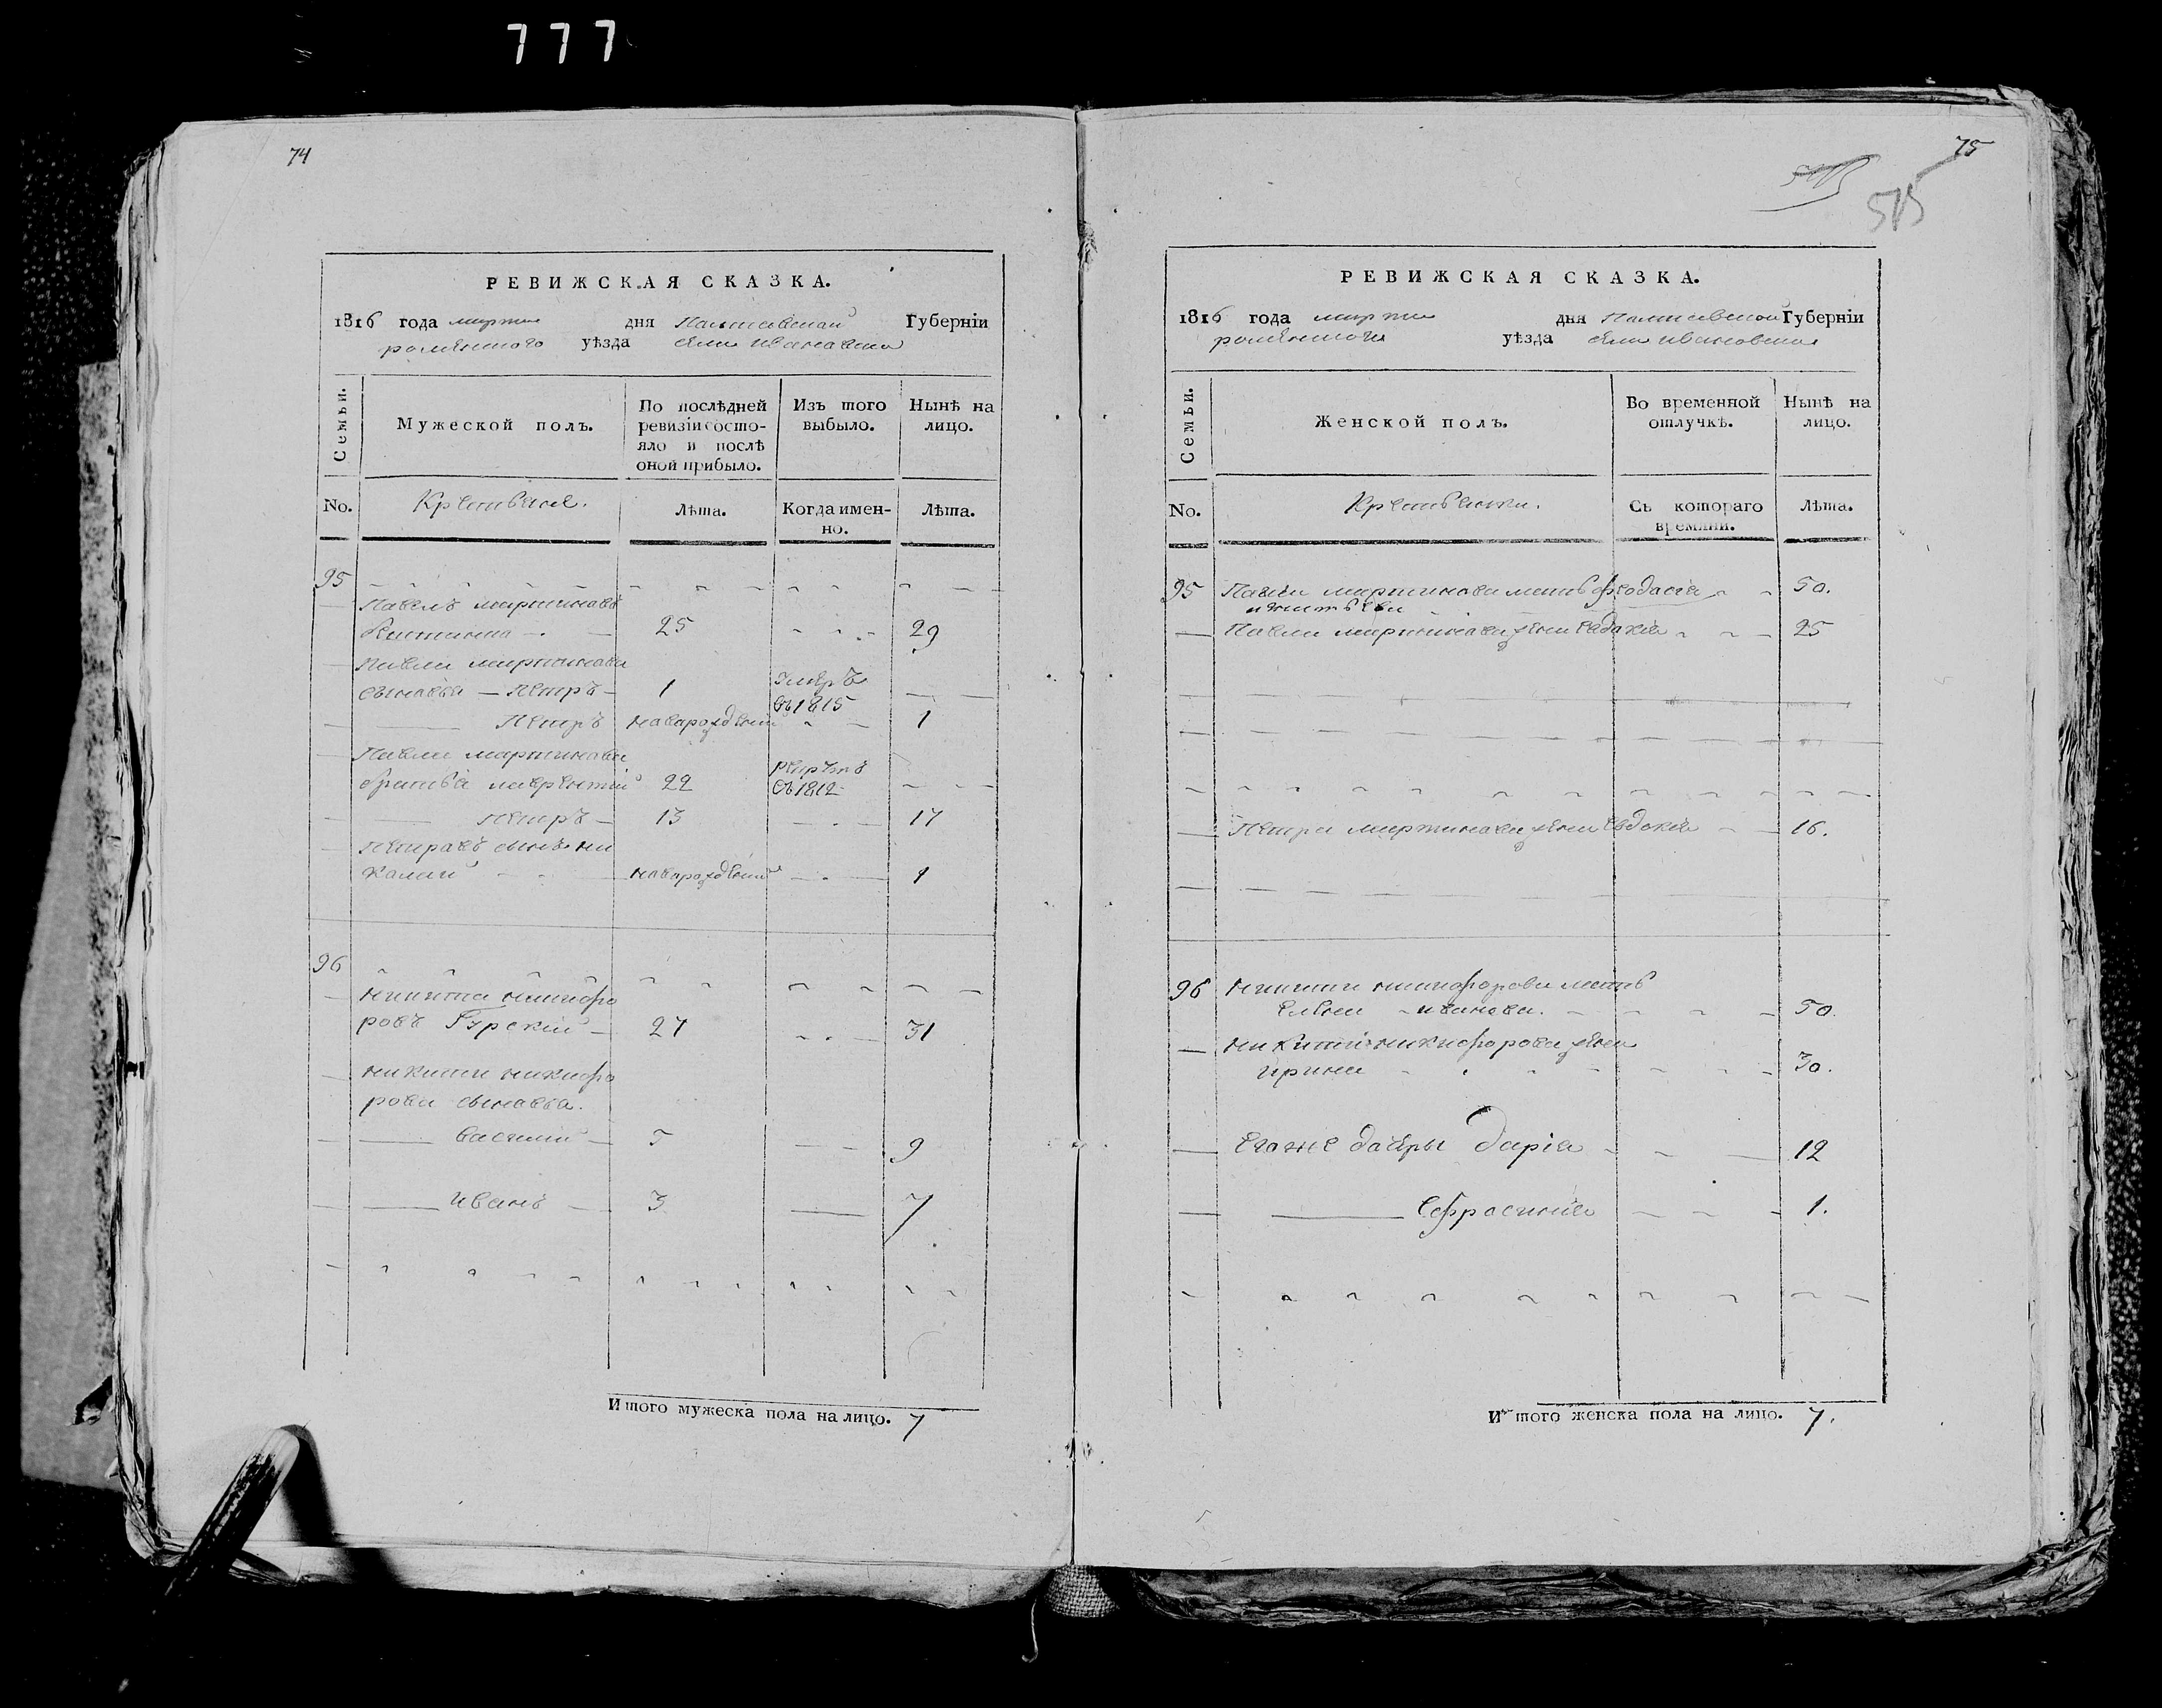 777
74
РЕВИЖСКАЯ СКАЗКА.
1816 года марта дня Полтавской Губерніи
роменского уѣзда села Ивановки
Семьи.
Мужеской полъ.
По послѣдней ревизіи состо-
яло и послѣ
оной прибыло.
Изъ того
выбыло.
Нынѣ на
лицо.
No.
Крестьяне.
Лѣта.
Когда имен-
но.
Лѣта.
95
Павелъ мартиновъ
25 29
Павла мартинова
сыновья — Петръ — 1 умеръ
въ 1815
Петръ новорожденный 1
Павла мартинова
братья лаврентій 22 рекрутъ
въ 1812
Петръ — 13 17
Петровъ сынъ ни
колай новорожденный 1
96
никита никифо
ровъ Гурскій — 27 31
никиты никифо
рова сыновья.
василий — 5 9
иванъ — 3 7
Итого мужеска пола на лицо. 7
75
515
РЕВИЖСКАЯ СКАЗКА.
1816 года марта дня Полтавской Губерніи
роменского уѣзда села Ивановки
Семьи.
Женской полъ.
Во временной
отлучкѣ.
Нынѣ на
лицо.
No.
Крестьянки.
Съ котораго
времяни.
Лѣта.
95 Павла мартинова мать феодосія 50.
Павла мартинова жена Евдокія 25
Петра мартинова жена Евдокія 16.
96 никиты никифорова мать
Елена иванова. 50.
никиты никифорова жена
ирина 30.
Егоже дочеры Дарія 12
Ефросинія 1.
Итого женска пола на лицо. 7.